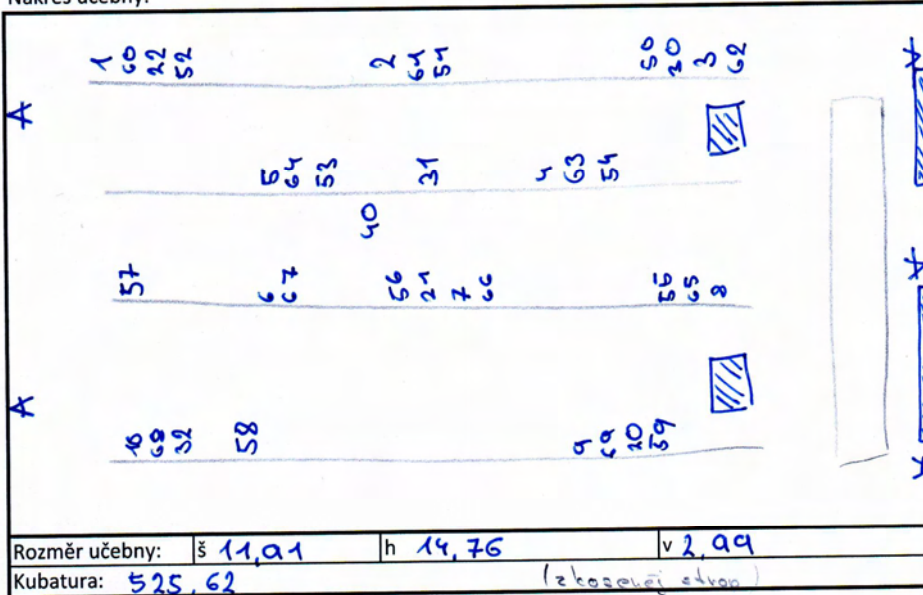 Nákres učebny:
1 60 22 52 2 61 51 50 30 3 62
A
5 64 53 31 4 63 54
40
57 6 67 56 21 7 66 55 65 8
A
10 68 32 58 9 69 20 59
Rozměr učebny: š 11,91 h 14,76 v 2,99
Kubatura: 525,62 (zkosenej strop)